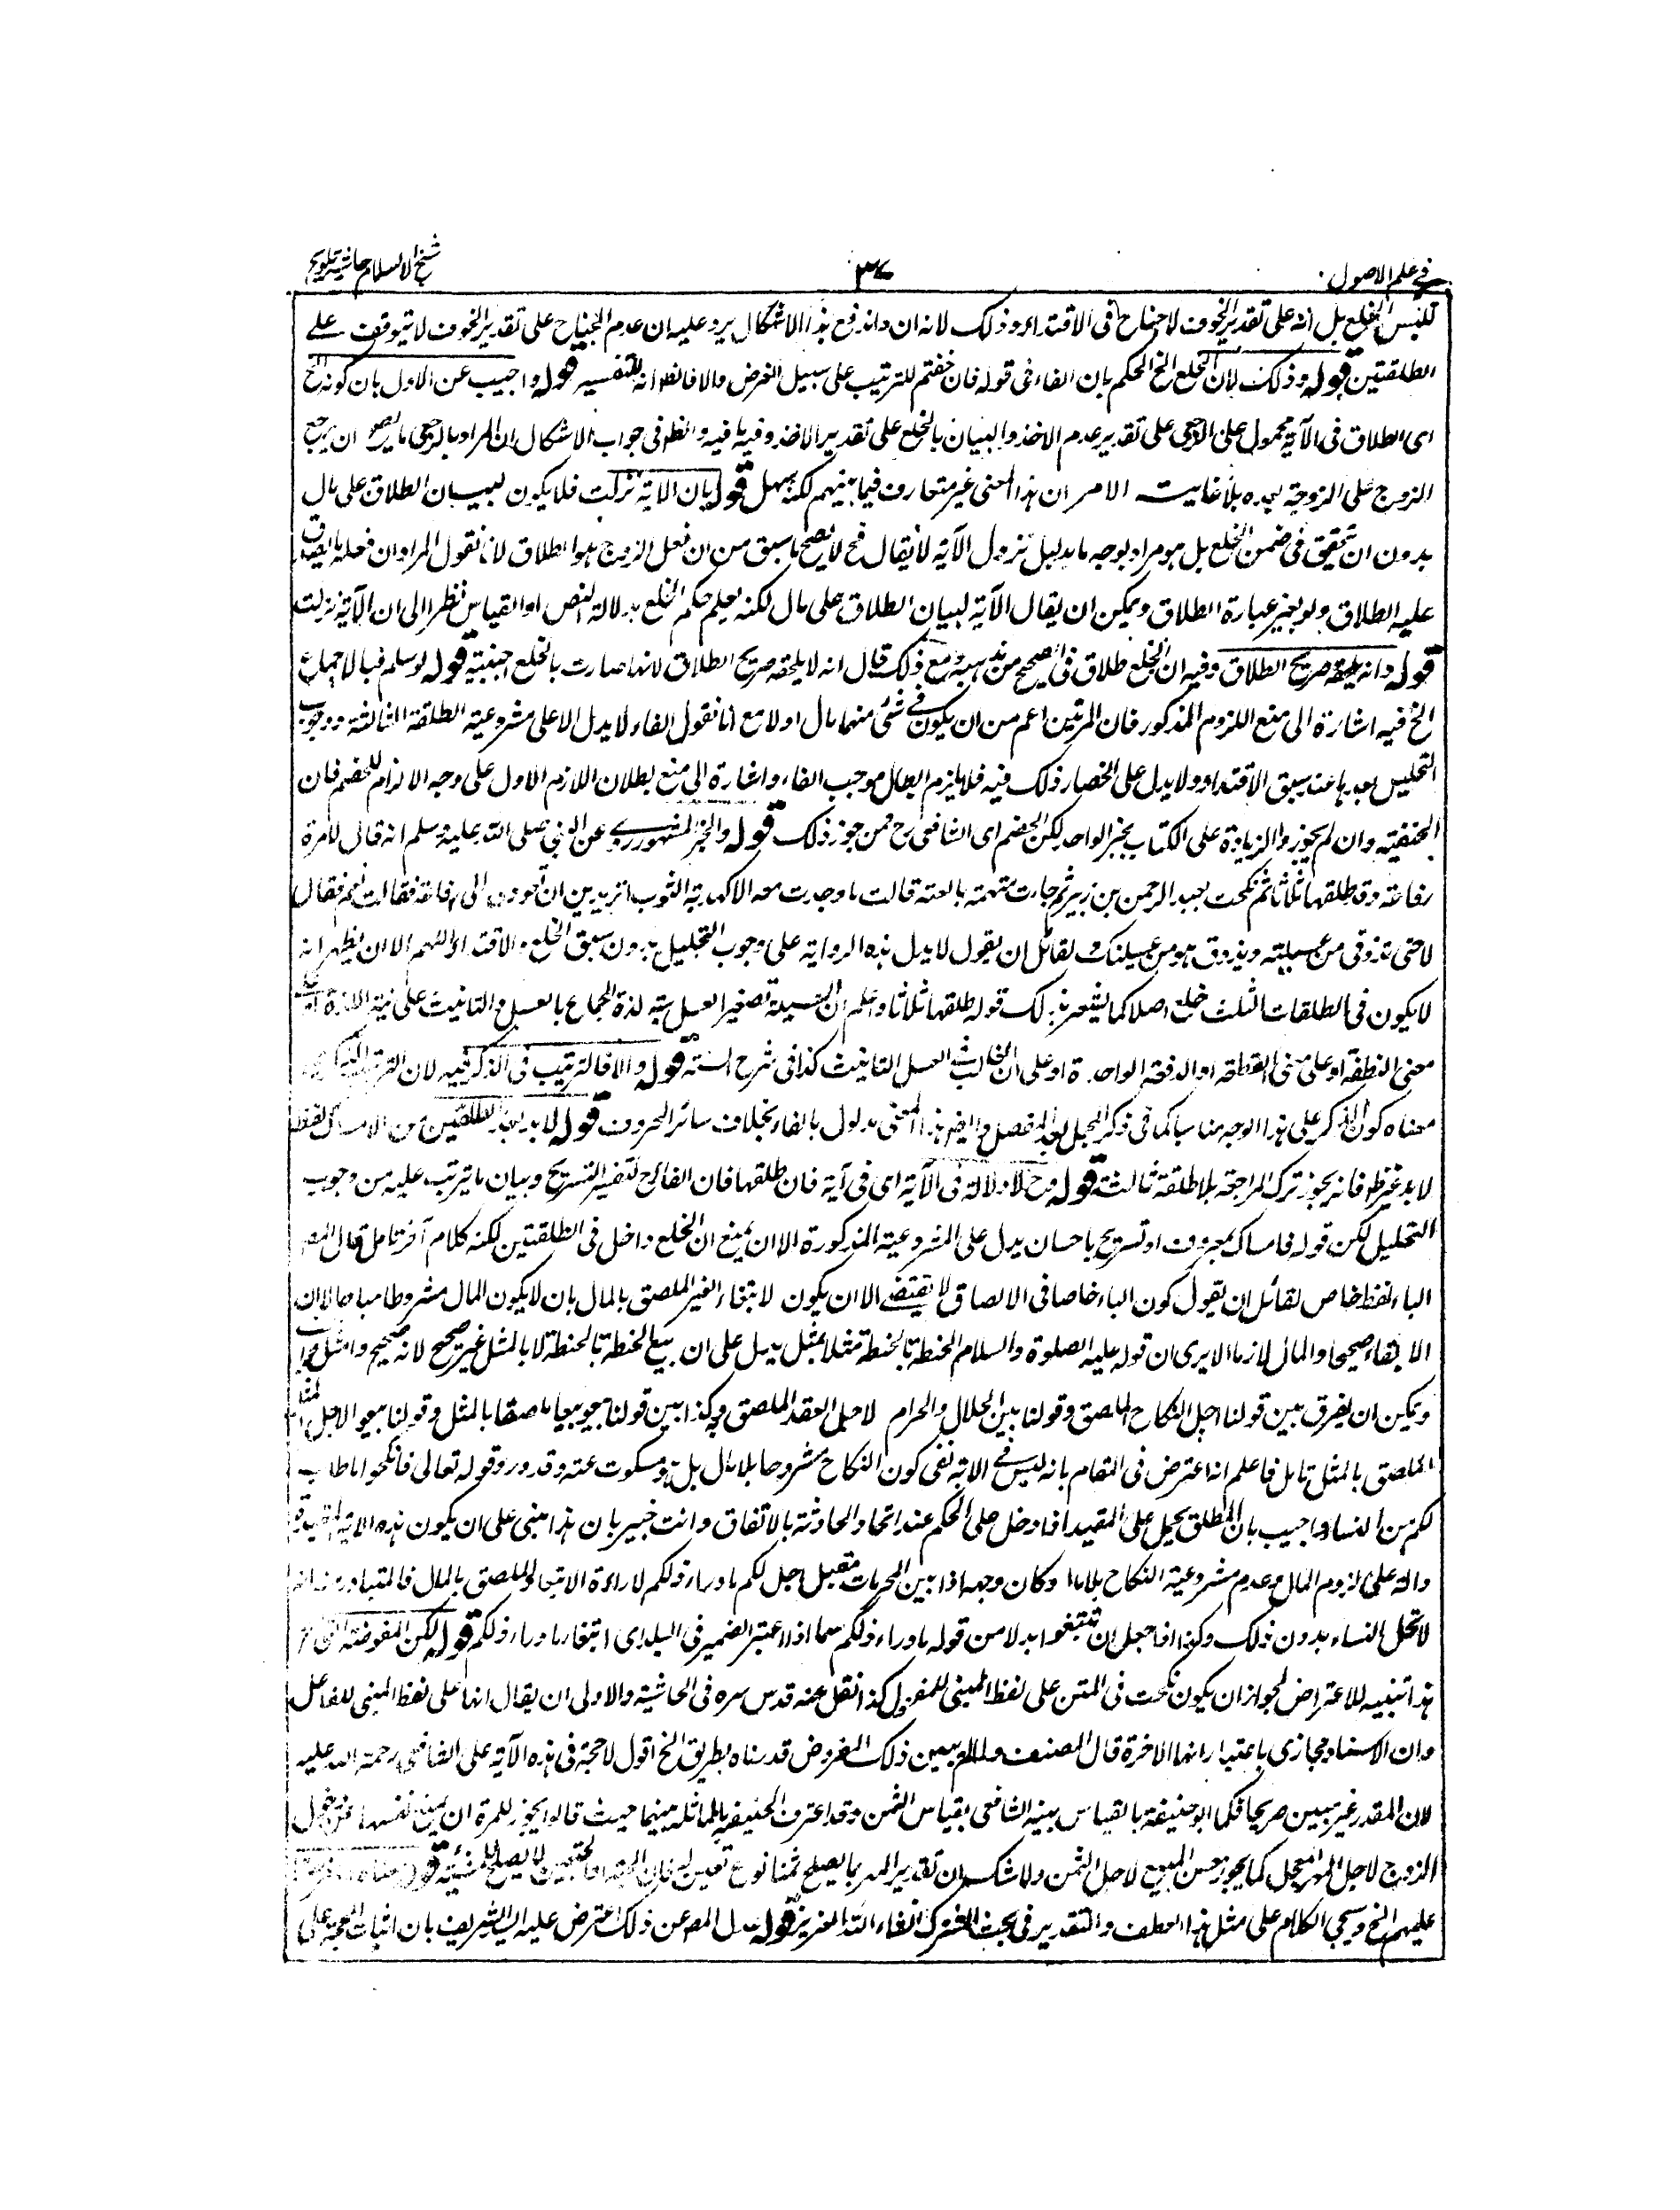 في علم الاصول
٣٧
شيخ الاسلام حاشية تلويح
للبس الخلع بل انه على تقدير الخوف لا جناح في الافتداء وذلك لانه ان اندفع هذا الاشكال يرد عليه ان عدم الجناح على تقدير الخوف لا يتوقف على
الطلقتين قوله وذلك لان الخلع الخ الحكم بان الفاء في قوله فان خفتم للترتيب على سبيل الفرض والا فالظ انه للتفسير قوله واجيب عن الاول بان كونه الخ
اى الطلاق في الآية محمول على الرجعى على تقدير عدم الاخذ والبيان بالخلع على تقدير الاخذ وفيه ما فيه والظ في جواب الاشكال ان المراد بالرجعى ما يصح ان يرجع
الزوج على الزوجة بعده بلا غاية الامر ان هذا المعنى غير متعارف فيما بينهم لكنه سهل قوله بان الاية نزلت فلا يكون لبيان الطلاق على مال
بدون ان تحقق في ضمن الخلع بل هو مراد بوجه ما بدليل نزول الآية لا يقال فح لا يصح ما سبق من ان فعل الزوج هو الطلاق لانا نقول المراد ان فعله ما يصدق
عليه الطلاق ولو بغير عبارة الطلاق ويمكن ان يقال الآية لبيان الطلاق على مال لكنه يعلم حكم الخلع بدلالة النص او القياس نظرا الى ان الآية نزلت
قوله وانه يلحقه صريح الطلاق وفيه ان الخلع طلاق في الصحيح من مذهبه ومع ذلك قال انه لا يلحقه صريح الطلاق لانها صارت بالخلع اجنبية قوله لو سلم فبالاجماع
الخ فيه اشارة الى منع اللزوم المذكور فان المرتين اعم من ان يكون في شئ منهما مال او لا مع انا نقول الفاء لا يدل الا على مشروعية الطلقة الثالثة ووجوب
التحليل بعدها عند سبق الافتداء ولا يدل على انحصار ذلك فيه فلا يلزم ابطال موجب الفاء واشارة الى منع بطلان اللازم الاول على وجه الالزام للخصم فان
الحنفية وان لم يجوزوا الزيادة على الكتاب بخبر الواحد لكن الخصم اى الشافعى رح ممن جوز ذلك قوله والخبر المشهور روى عن النبي صلى الله عليه وسلم انه قال لامرة
رفاعة وقد طلقها ثلاثا ثم نكحت بعبد الرحمن بن زبير ثم جاءت تتهمه بالعنة قالت ما وجدت معه الا كهدبة الثوب اتريدين ان تعودى الى رفاعة فقالت نعم فقال
لا حتى تذوقى من عسيلته ويذوق هو من عسيلتك ولقائل ان يقول لا يدل هذه الرواية على وجوب التحليل بدون سبق الخلع والافتداء اللهم الا ان يظهر انه
لا يكون في الطلقات الثلث خلع اصلا كما يشعر بذلك قوله طلقها ثلاثا واعلم ان العسيلة تصغير العسل شبه لذة الجماع بالعسل والتانيث على نية اللذة او
معنى النطفة او على معنى القطعة او الدفعة الواحدة او على ان الغالب في العسل التانيث كذا في شرح السنة قوله والا فالترتيب في الذكر فيه لان الترتيب
معناه كون الذكر على هذا الوجه مناسبا كما في ذكر المجمل بعد المفصل وايضا هذا المعنى مدلول بالفاء بخلاف سائر الحروف قوله لا بد بعد الطلقتين من الامساك لفظة
لا بد غير ظ فانه يجوز ترك المراجعة بلا طلقة ثالثة قوله وح لا دلالة في الآية اى في آية فان طلقها فان الفاء ح لتفسير التسريح وبيان ما يترتب عليه من وجوب
التحليل لكن قوله فامساك بمعروف او تسريح باحسان يدل على المشروعية المذكورة الا ان يمنع ان الخلع داخل في الطلقتين لكنه كلام آخر تامل قال المص
الباء لفظ خاص لقائل ان يقول كون الباء خاصا في الالصاق لا يقتضى الا ان يكون لابتغاء الغير الملصق بالمال بان لا يكون المال مشروطا مباحا لا ان
الابتغاء صحيحا والمال لازما الا يرى ان قوله عليه الصلوة والسلام الحنطة بالحنطة مثلا بمثل يدل على ان بيع الحنطة بالحنطة لا بالمثل غير صحيح لا انه صحيح والمثل واجب
ويمكن ان يفرق بين قولنا احل النكاح الملصق وقولنا بين الحلال والحرام لاحل العقد الملصق وكذا بين قولنا بيعوا بيعا ملصقا بالمثل وقولنا بيعوا لاجل
الملصق بالمثل تامل فاعلم انه اعترض في المقام بانه ليس في الاية نفى كون النكاح مشروعا بلا مال بل هو مسكوت عنه وقد ورد قوله تعالى فانكحوا ما طاب
لكم من النساء واجيب بان المطلق يحمل على المقيد اذا دخل على الحكم عند اتحاد الحادثة بالاتفاق وانت خبير بان هذا مبنى على ان يكون هذه الاية المقيدة
دالة على لزوم المال وعدم مشروعية النكاح بلا مال وكان وجهه اذا بين المحرمات فقيل احل لكم ما وراء ذلكم لارادة الابتغاء الملصق بالمال فالمتبادر منه انه
لا تحل النساء بدون ذلك وكذا اذا جعل ان تبتغوا بدلا من قوله ما وراء ذلكم سيما اذا اعتبر الضمير في البدل اى ابتغاء ما وراء ذلكم قوله لكن المفوضة التى
هذا تنبيه للاعتراض لجواز ان يكون نكحت في المتن على لفظ المبنى للمفعول كذا نقل عنه قدس سره في الحاشية والاولى ان يقال انها على لفظ المبنى للفاعل
وان الاسناد مجازى باعتبار انها الاخرة قال المصنف ولما لم يبين ذلك المفروض قدرناه بطريق الخ اقول لا حجة في هذه الآية على الشافعى رحمة الله عليه
لان المقدر غير مبين صريحا فكما ابو حنيفة بالقياس بينه الشافعى بقياس الثمن وقد اعترف الحنيفة بالمماثلة بينهما حيث قالوا يجوز للمرة ان تمنع نفسها عن دخول
الزوج لاجل المهر المعجل كما يجوز حبس المبيع لاجل الثمن ولا شك ان تقدير المهر بما يصلح ثمنا نوع تعيين
عليهم الخ وسيجئ الكلام على مثل هذا العطف والتقدير في بحث المشترك انشاء الله العزيز قوله عدل المص عن ذلك اعترض عليه السيد الشريف بان اثبات الحجة على